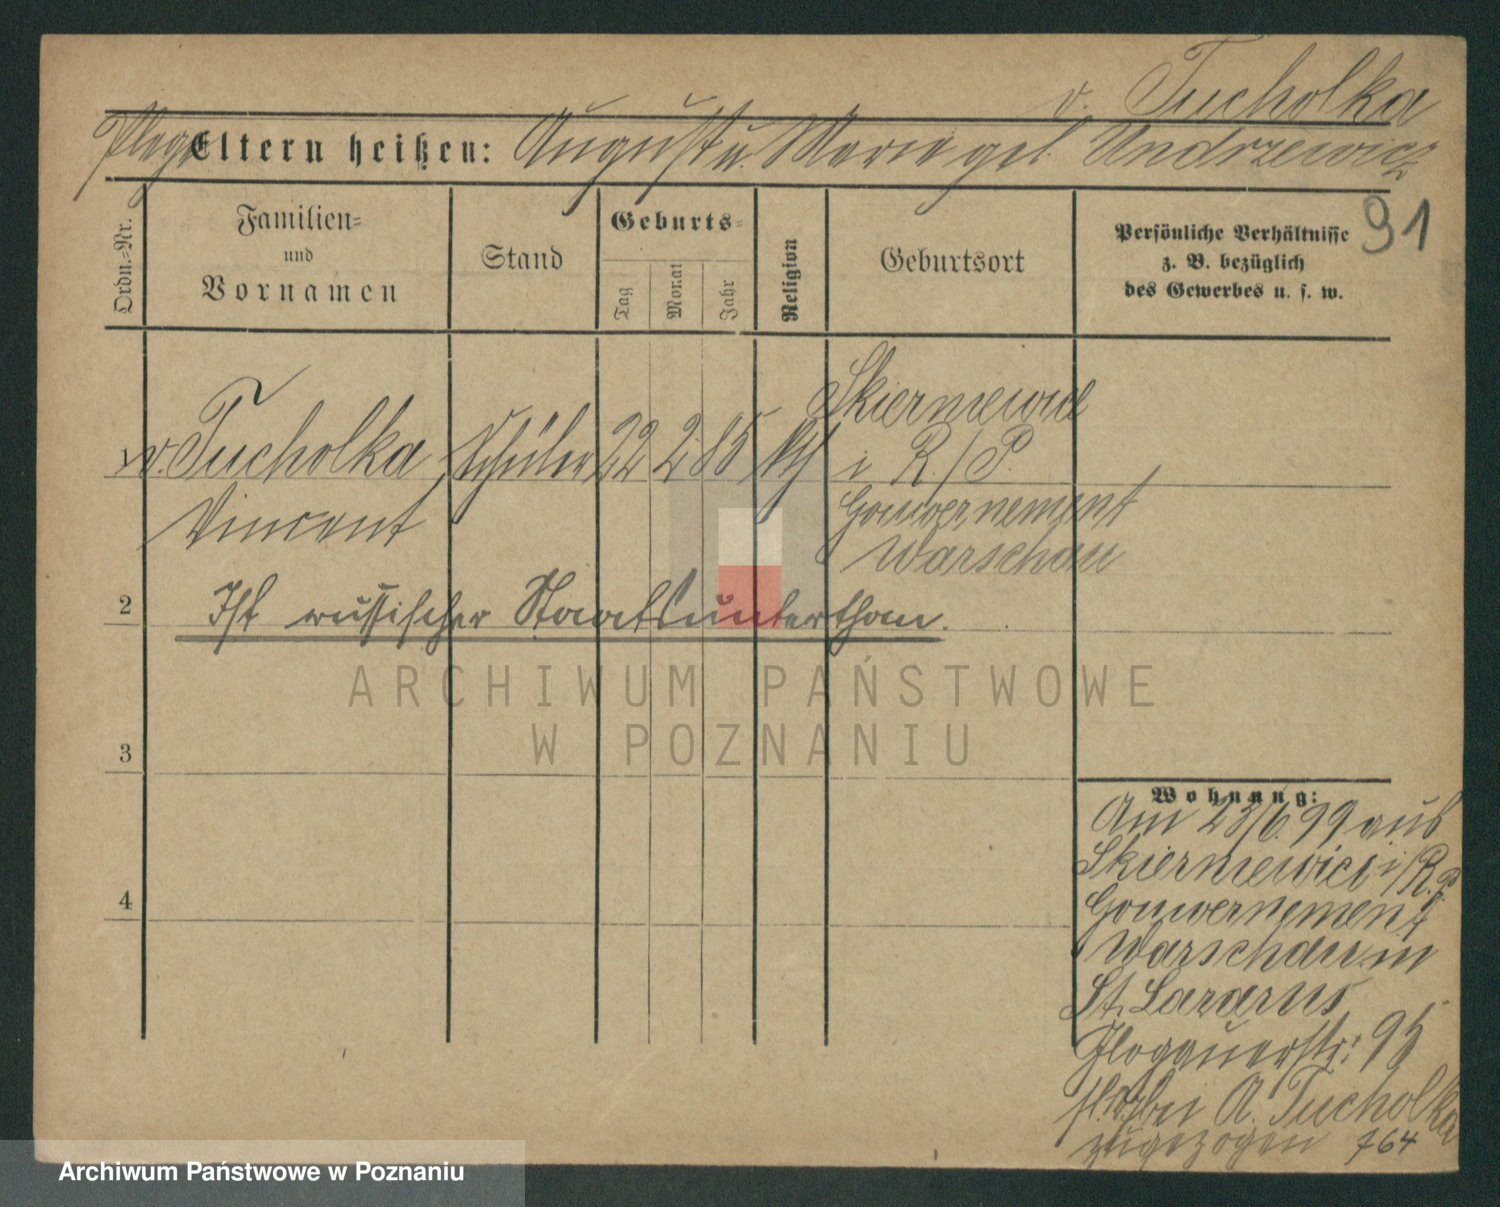 v. Tucholka
Pflege Eltern heißen: August u. Marie geb. Andrzewicz
91
Ordn.-Nr.
Familien-
und
Vornamen
Stand
Geburts-
Tag
Monat
Jahr
Religion
Geburtsort
Persönliche Verhältnisse
z. B. bezüglich
des Gewerbes u. s. w.
1 v. Tucholka Schüler 22 2 85 kth Skierniewice
i R./P.
Vincent Gouvernement
Warschau
2 Ist russischer Staatsunterthan.
3
4
Wohnung:
Am 23/6. 99 aus
Skierniewici i/R.P.
Gouvernement
Warschau in
St. Lazarus
Glogauerstr: 95
bei A. Tucholka
zugezogen 764
ARCHIWUM PAŃSTWOWE
W POZNANIU
Archiwum Państwowe w Poznaniu